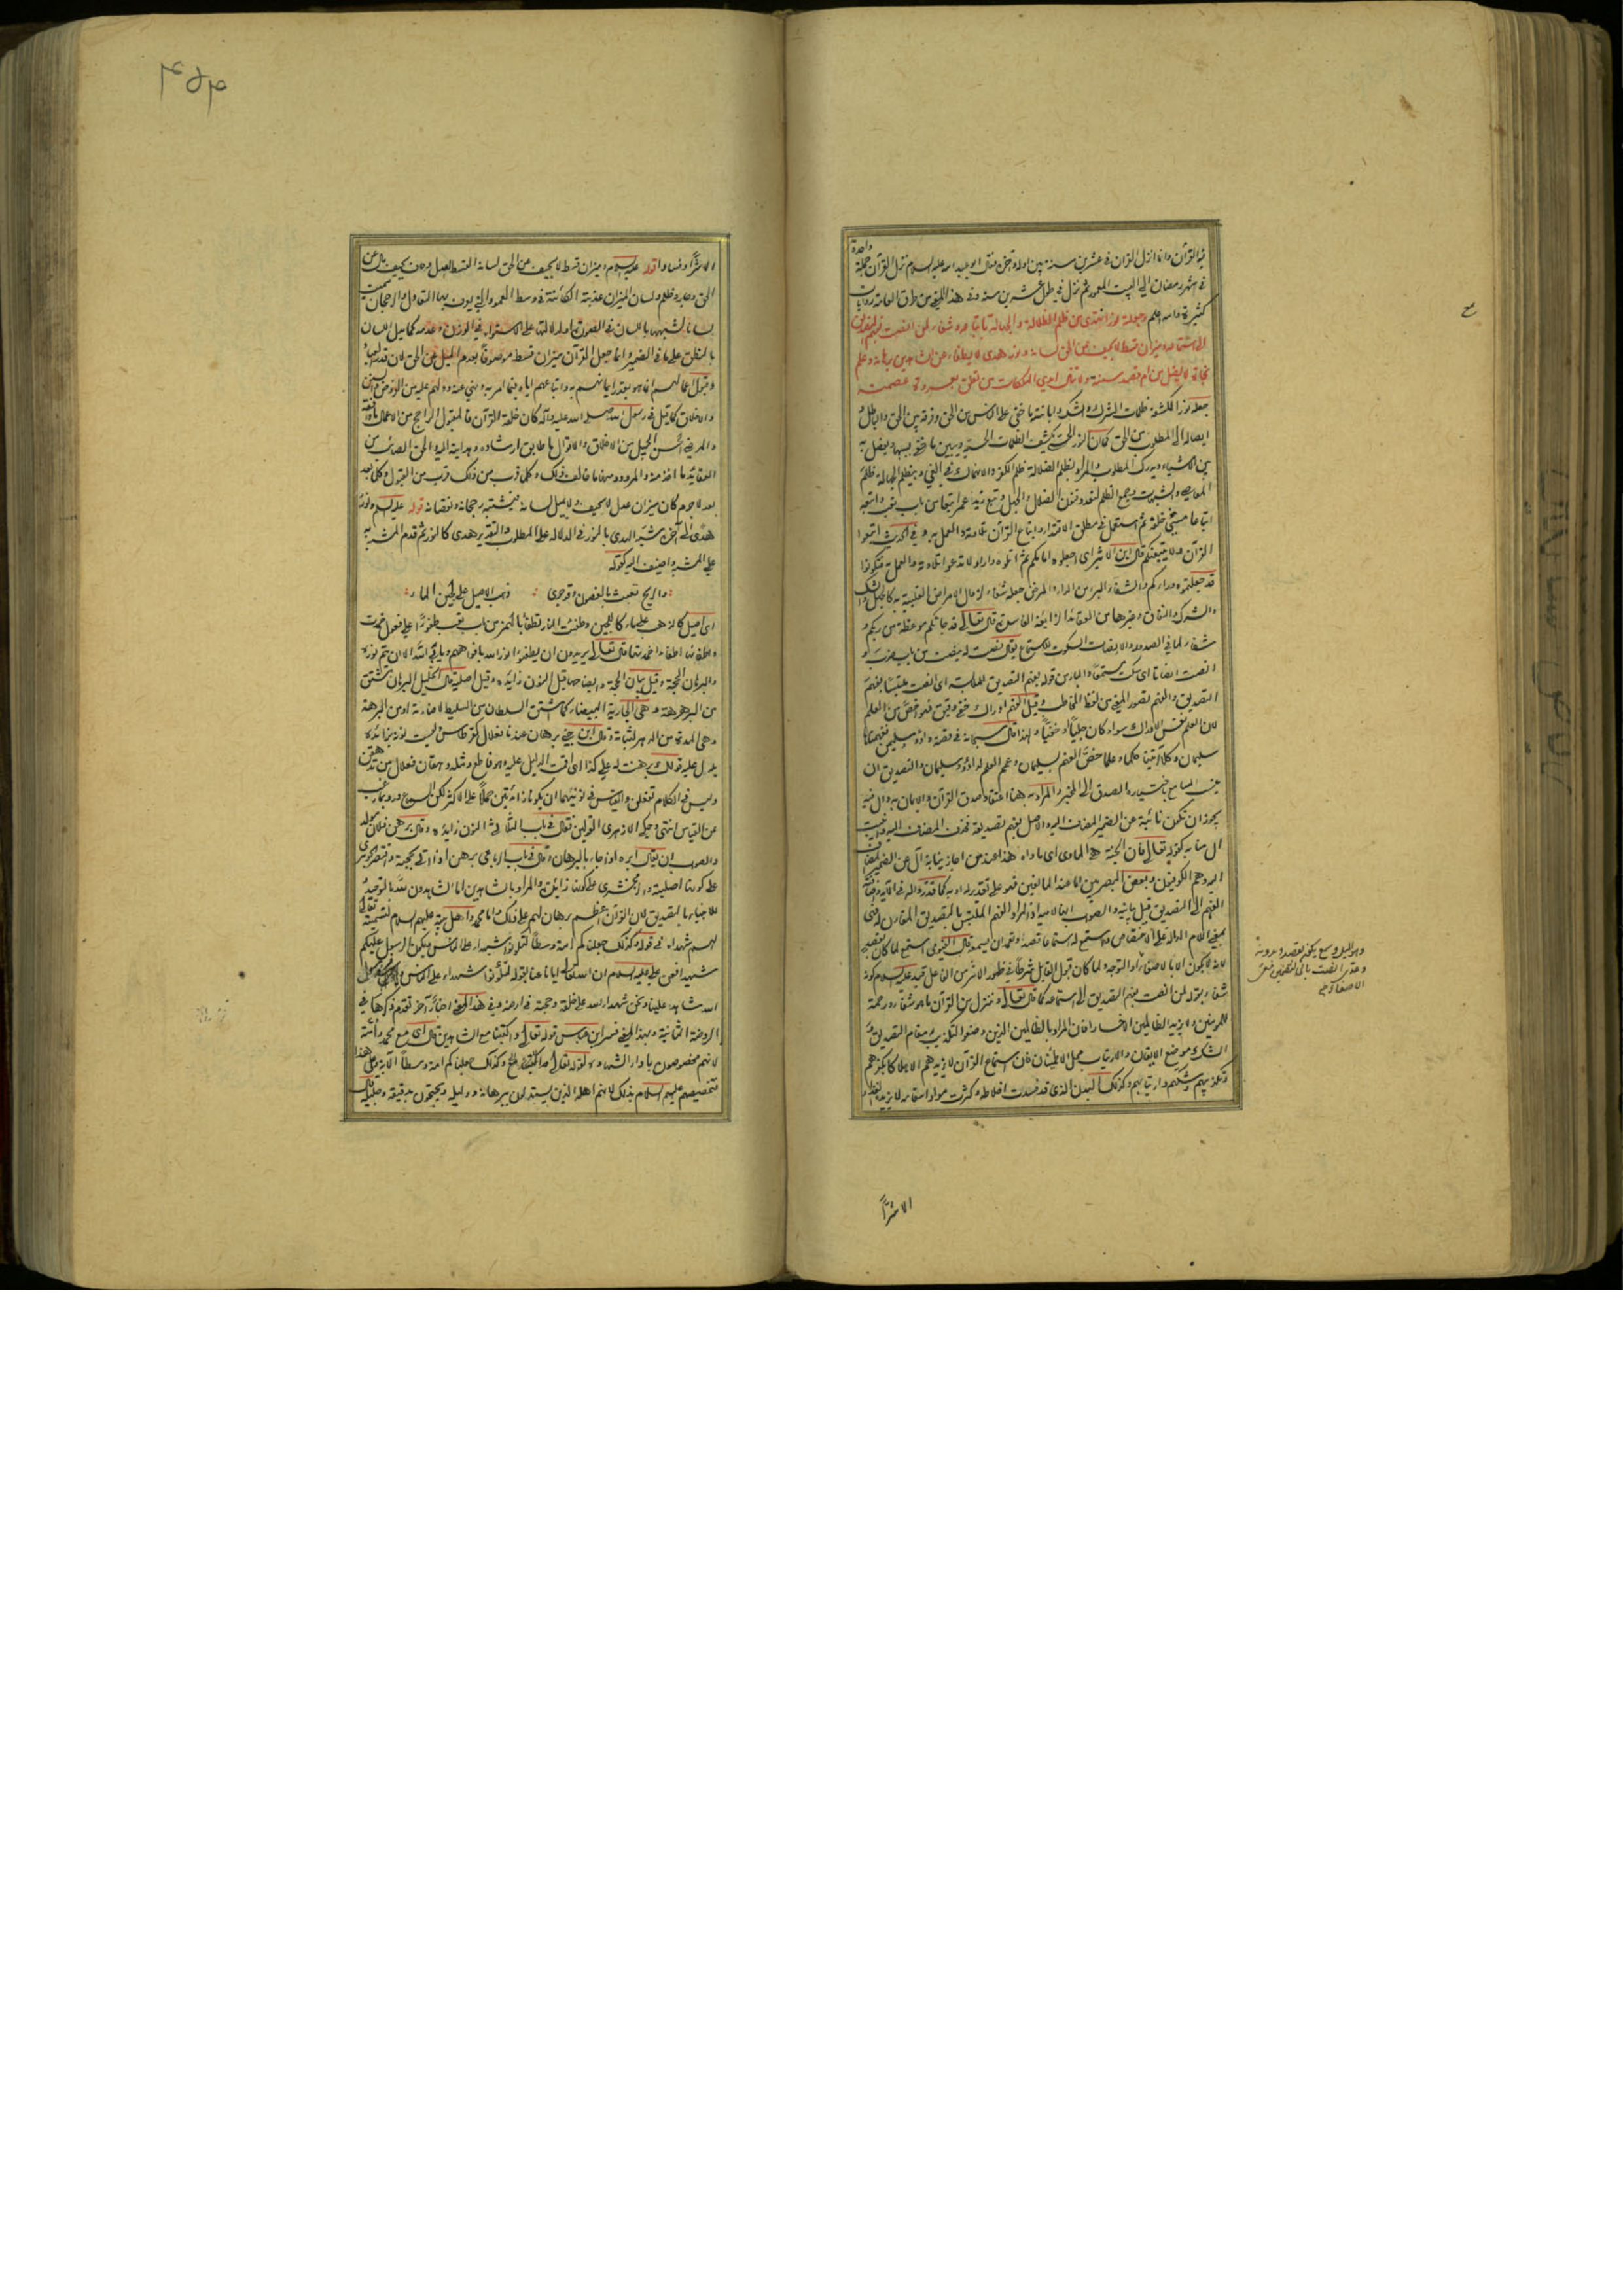 فيه القرآن وانما انزل القرآن في عشرين سنة بين اوله وآخره فقال ابو عبد الله عليه السلام نزل القرآن جملة واحدة
في شهر رمضان الى البيت المعمور ثم نزل في طول عشرين سنة وفي هذا المعنى من طرق العامة روايات
كثيرة والله اعلم وجعلته نورا نهتدي من ظلم الضلالة والجهالة باتباعه وشفاء لمن انصت بفهم التصديق
الى استماعه وميزان قسط لا يحيف عن الحق لسانه ونور هدى لا يطفأ عن الشاهدين برهانه وعلم
نجاة لا يضل من ام قصد سنته ولا تنال ايدي الهلكات من تعلق بعروة عصمته
جعله نورا لكشفه ظلمات الشرك والشك وابانته ما خفي على الناس من الحق وفرقه بين الحق والباطل و
ايصاله الى المطلوب من الحق كما ان النور الحسي يكشف الظلمات الحسية ويبين ما خفي بسببها ويفصل به
بين الاشياء ويدرك المطلوب والمراد بظلم الضلالة ظلم الكفر والانهماك في الغي وبظلم الجهالة ظلم
المعاصي والشبهات وجمع الظلم لتعدد فنون الضلال والجهل وتبع زيد عمرا تبعا من باب تعب واتبعه
اتباعا مشى خلفه ثم استعمل في مطلق الاقتداء واتباع القرآن تلاوته والعمل به وفي الحديث اتبعوا
القرآن ولا يتبعنكم قال ابن الاثير اي اجعلوه امامكم ثم اتلوه واراد لا تدعوا تلاوته والعمل به فتكونوا
قد جعلتموه وراءكم والشفاء البرء من الداء والمرض جعله شفاء لازالة الامراض القلبية به كالجهل والشك
والشرك والنفاق وغيرها من العقائد الزائغة الفاسدة قال تعالى قد جاءتكم موعظة من ربكم و
شفاء لما في الصدور والانصات السكوت للاستماع يقال نصت له ينصت من باب ضرب و
انصت انصاتا اي سكت مستمعا والباء من قوله بفهم التصديق للملابسة اي انصت ملتبسا بفهم
التصديق والفهم تصور المعنى من لفظ المخاطب وقيل الفهم ادراك خفي دقيق فهو اخص من العلم
لان العلم نفس الادراك سواء كان جليا او خفيا ولهذا قال سبحانه في قصة داود وسليمن ففهمناها
سليمان وكلا آتينا حكما وعلما خص الفهم بسليمان وعم العلم لداود وسليمان والتصديق ان
ينسب السامع باختياره الصدق الى المخبر والمراد به هنا اعتقاد صدق القرآن والايمان به وال فيه
يجوز ان تكون نائبة عن الضمير المضاف اليه والاصل بفهم تصديقه فحذف المضاف اليه وانيبت
ال منابه كقوله تعالى فان الجنة هي الماوى اي ماواه هذا عند من اجاز نيابة ال عن الضمير المضاف
اليه وهم الكوفيون وبعض البصريين
الفهم الى التصديق قيل بيانية والصواب انها لامية اذ المراد الفهم المتلبس بالتصديق المقارن له فهي
بمعنى اللام الدالة على الاختصاص واستمع له استماعا قصد وتعمد ان يسمع قال الفيومي استمع لما كان بقصد
لانه لا يكون الا بالاصغاء والتوجه ولما كان قبول القابل شرطا في ظهور الاثر من الفاعل قيد عليه السلام كونه
شفاء بقوله لمن انصت بفهم التصديق الى استماعه كما قال تعالى وننزل من القرآن ما هو شفاء ورحمة
للمؤمنين ولا يزيد الظالمين الا خسارا فان المراد بالظالمين الذين وضعوا التكذيب مقام التصديق و
الشك موضع الايقان والارتياب محل الاطمئنان فان استماع القرآن لا يزيدهم الا هلاكا بكفرهم
وتكذيبهم وشكهم وارتيابهم وكذلك البدن الذي قد فسدت اخلاطه وكثرت مواد اسقامه لا يزيده الغذاء
وهو المبل وسمع يكون بقصد وبدونه
الاصغاء
الا شرا
۴۵۴
الا شرا وفسادا قوله عليه السلام وميزان قسط لا يحيف عن الحق لسانه القسط العدل وحاف يحيف مال عن
الحق وجار وظلم ولسان الميزان عذبته الكائنة في وسط العمود التي يعرف بها التعادل والرجحان سميت
لسانا لشبهها باللسان في الصورة او لدلالتها على الاستواء في الوزن وعدمه كما يدل اللسان
بالنطق على ما في الضمير وانما جعل القرآن ميزان قسط موصوفا بعدم الميل عن الحق لان قدر العباد
وقبول اعمالهم انما هو بقدر ايمانهم به واتباعهم اياه فيما امر به ونهى عنه ودلهم عليه من الفرض والسنن
والاخلاق كما قيل في رسول الله صلى الله عليه وآله كان خلقه القرآن فالمقبول الراجح من الاعمال ما وافقه
والمرضي الحسن الجميل من الاخلاق والاقوال ما طابق ارشاده وهدايته اليه والحق الصائب من
العقائد ما اخذ منه والمردود منها ما خالف ذلك وكلما قرب من ذلك قرب من القبول وكلما بعد
بعد لا جرم كان ميزان عدل لا يحيف ولا يميل لسانه فيشتبه رجحانه ونقصانه قوله عليه السلام ونور
هدى الى آخره شبه الهدى بالنور في الدلالة على المطلوب والتقدير هدى كالنور ثم قدم المشبه به
على المشبه واضيف اليه كقوله
والريح تعبث بالغصون وقد جرى ذهب الاصيل على لجين الماء
اي اصيل كالذهب على ماء كاللجين وطفئت النار تطفأ بالهمز من باب تعب طفوءا على فعول خمدت
واطفأتها اطفاء اخمدتها قال تعالى يريدون ان يطفئوا نور الله بافواههم ويابى الله الا ان يتم نوره
والبرهان الحجة وقيل بيان الحجة وايضاحها قيل النون زائدة وقيل اصلية قال الخليل البرهان مشتق
من البرهرهة وهي الجارية البيضاء كما اشتق السلطان من السليط لاضاءته او من البرهة
وهي المدة من الدهر لثباته وقال ابن جني برهان عندنا فعلال كقرطاس ليست نونه بزائدة
يدل عليه قولك برهنت له على كذا اي اقمت الدليل عليه وهو قاطع ومثله دهقان فعلال من تدهقن
وليس في الكلام تفعلن والقياس في نونيهما ان يكونا زائدتين حملا على الاكثر لكن السماع ورد بما رغب
عن القياس انتهى وحكى الازهري القولين فقال في باب الثلاثي النون زائدة وقال برهن فلان مولد
والصواب ان يقال ابره اذا جاء بالبرهان وقال في باب الرباعي برهن اذا اتى بحجته واقتصر الجوهري
على كونها اصلية والزمخشري على كونها زائدة والمراد بالشاهدين اما الشاهدون لله بالتوحيد و
للانبياء بالتصديق لان القرآن اعظم برهان لهم على ذلك واما محمد واهل بيته عليهم السلام لتسميته تعالى
لهم شهداء في قوله وكذلك جعلناكم امة وسطا لتكونوا شهداء على الناس ويكون الرسول عليكم
شهيدا فعن علي عليه السلام ان الله تعالى ايانا عنا بقوله لتكونوا شهداء على الناس فرسول
الله شاهد علينا ونحن شهداء الله على خلقه وحجته في ارضه وفي هذا المعنى اخبار اخر تقدم ذكرها في
الروضة الثانية وبهذا المعنى فسر ابن عباس قوله تعالى واكتبنا مع الشاهدين قال اي مع محمد وامته
لانهم مخصوصون باداء الشهادة لقوله تعالى وكذلك جعلناكم امة وسطا الآية وعلى هذا
فتخصيصهم عليهم السلام بذلك لانهم اهله الذين يستدلون ببرهانه ودليله ويحتجون بدقيقه وجليله